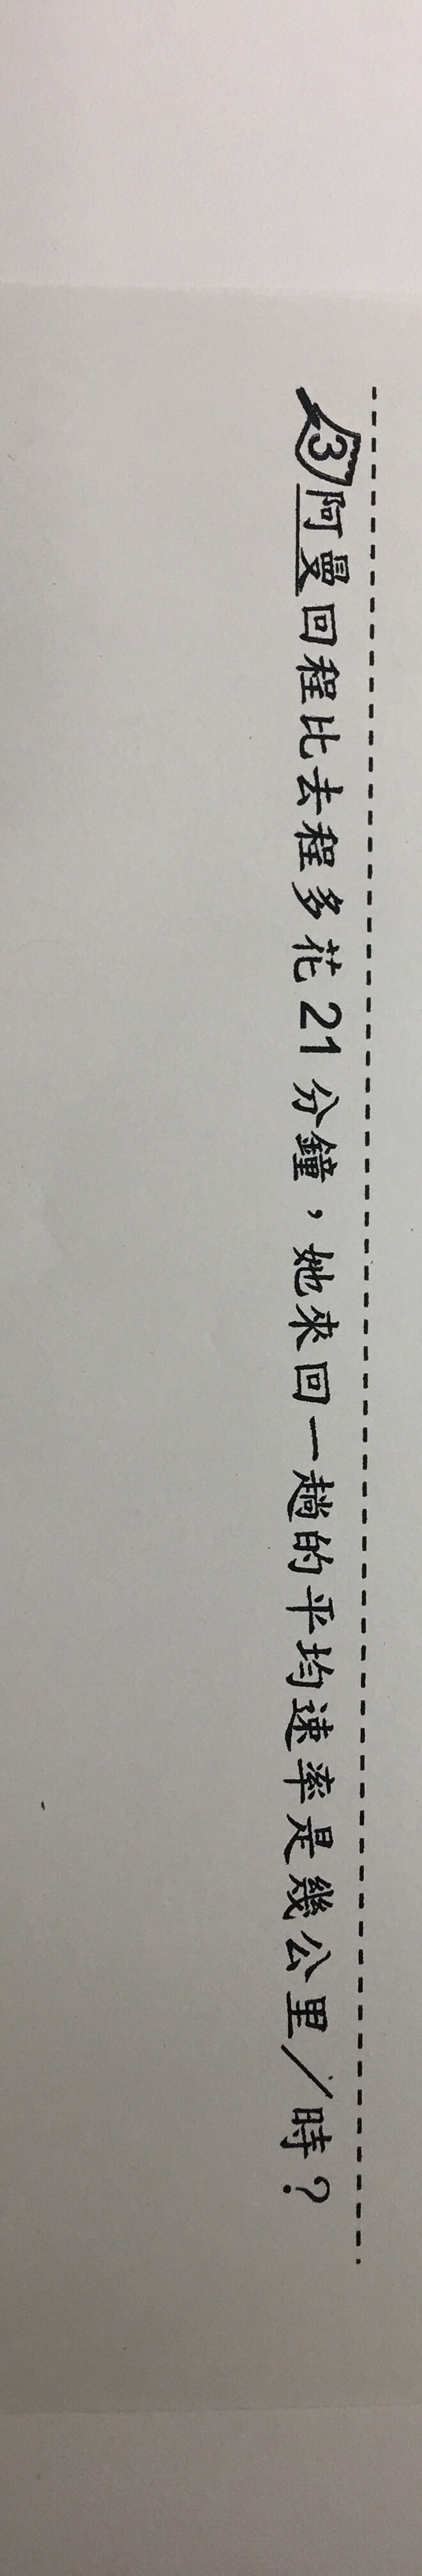 3 阿曼回程比去程多花21分鐘，她來回一趟的平均速率是幾公里／時？